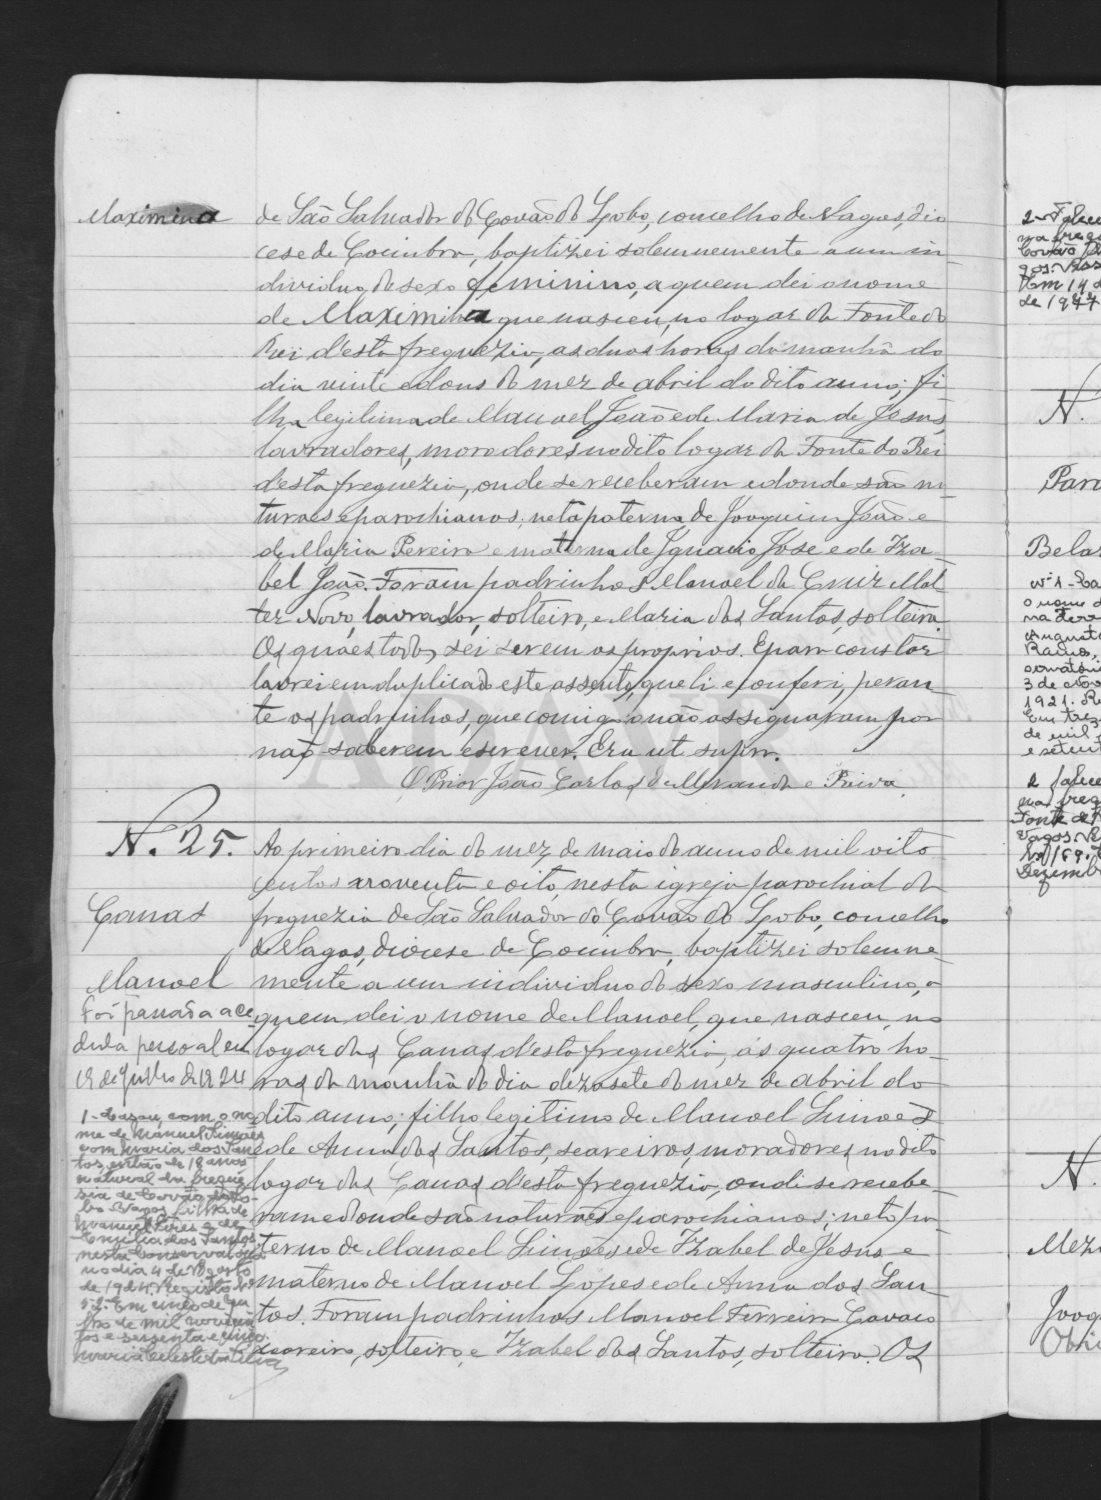 Maximina
de São Salvador do Covão do Lobo, concelho de Vagos, dio
cese de Coimbra, baptizei solemnemente a um in-
dividuo do sexo feminino, a quem dei o nome
de Maximina, que nasceu, no logar da Fonte do
Rei d'esta freguezia, as duas horas da manhã do
dia vinte e dous do mez de abril do dito anno; fi-
lha legitima de Manoel João e de Maria de Jesus,
lavradores, moradores no dito logar da Fonte do Rei
d'esta freguezia, onde se receberam e donde são na-
turaes e parochianos; neta paterna de Joaquim João e
de Maria Pereira e materna de Ignacio José e de Iza-
bel João. Foram padrinhos Manoel da Cruz
Novo, lavrador, solteiro, e Maria dos Santos, solteira.
Os quaes todos sei serem os proprios. E para constar
lavrei em duplicado este assento, que li e conferi, peran-
te os padrinhos, que comigo não assignaram por
não saberem escrever. Era ut supra.
O Prior João Carlos de Miranda e Paiva.
N. 25.
Canas
Manoel
Foi passada a ce-
dula pessoal em
19 de Julho de 1924
1-Casou, com o no
me de Manuel Simões
com Maria dos San
tos, então de 18 anos
natural da fregue
sia de Covão do Lo-
bo Vagos, filha de
Manuel Pires e de
Emilia dos Santos,
nesta Conservatória
no dia 4 de Agosto
de 1924. Registo
Em cinco de
de mil novecen
tos e sessenta e cinco.
Maria Celeste
Ao primeiro dia do mez de maio do anno de mil oito
centos noventa e oito, nesta igreja parochial da
freguezia de São Salvador do Covão do Lobo, concelho
de Vagos, diocese de Coimbra, baptizei solemne-
mente a um individuo do sexo masculino, a
quem dei o nome de Manoel, que nasceu, no
logar das Canas d'esta freguezia, ás quatro ho-
ras da manhã do dia dezasete do mez de abril do
dito anno; filho legitimo de Manoel Simões
e de Anna dos Santos, seareiros, moradores no dito
logar das Canas d'esta freguezia, onde se recebe-
ram e donde são naturaes e parochianos; neto pa-
terno de Manoel Simões e de Izabel de Jesus e
materno de Manoel Lopes e de Anna dos San-
tos. Foram padrinhos Manoel Ferreira Cavaco
seareiro, solteiro, e Izabel dos Santos, solteira. Os
de 1977
N.
Belar
3 de Nov
1921.
de mil
e setent
2 falece
na freg
Fonte de
Vagos.
Dezemb
N.